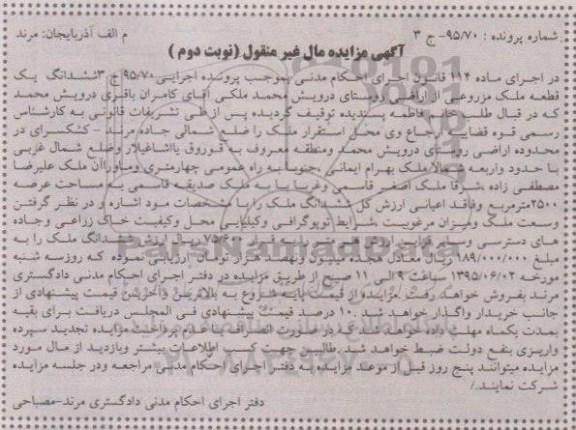 شماره پرونده : ۹۵/۷۰- ج ۳ م الف آذربایجان: مرند
آگهی مزایده مال غیر منقول (نوبت دوم )
در اجرای ماده ۱۱۴ قانون اجرای احکام مدنی بموجب پرونده اجرایی ۹۵/۷۰ج ۳ششدانگ یک
قطعه ملک مزروعی از اراضی روستای درویش محمد ملکی آقای کامران باقری درویش محمد
که در قبال طلب خانم فاطمه پسندیده توقیف گردیده پس از طی تشریفات قانونی به کارشناس
رسمی قوه قضاییه ارجاع وی محل استقرار ملک را ضلع شمالی جاده مرند - کشکسرای در
محدوده اراضی روستای درویش محمد ومنطقه معروف به قوروق یااشاغیلار وضلع شمال غربی
با حدود واربعه شمالا ملک بهرام ایمانی ،جنوبا به راه عمومی چهارمتری وماورآن ملک علیرضا
مصطفی زاده ،شرقا ملک اصغر قاسمی وغربا با به ملک صدیقه قاسمی به مساحت عرصه
۲۵۰۰مترمربع وفاقد اعیانی ارزش کل ششدانگ ملک را با مشخصات مود اشاره و در نظر گرفتن
وسعت ملک ومیزان مرغوبیت ،شرایط توپوگرافی وکیلیایی محل وکیفیت خاک زراعی وجاده
های دسترسی وسایر ارزش هر ریال ارزش ششدانگ ملک را به
مبلغ ۱۸۹/۰۰۰/۰۰۰ ریال معادل هجده میلیون ونهصد هزار تومان ارزیابی نموده که روزسه شنبه
مورخه ۱۳۹۵/۰۶/۰۲ ساعت ۹ الی ۱۱ صبح از طریق مزایده در دفتر اجرای احکام مدنی دادگستری
مرند بفروش خواهد رفت .مزایده از قیمت پایه شروع به بالاترین وآخرین قیمت پیشنهادی از
جانب خریدار واگذار خواهد شد .۱۰ درصد قیمت پیشنهادی فی المجلس دریافت برای بقیه
بمدت یکماه مهلت داده خواهد شد که در صورت انصراف یا عدم پرداخت مزایده تجدید سپرده
واریزی بنفع دولت ضبط خواهد شد .طالبین جهت کسب اطلاعات بیشتر وبازدید از مال مورد
مزایده میتوانند پنج روز قبل از موعد مزایده به دفتر اجرای احکام مدنی مراجعه ودر جلسه مزایده
شرکت نمایند./
دفتر اجرای احکام مدنی دادگستری مرند-مصباحی